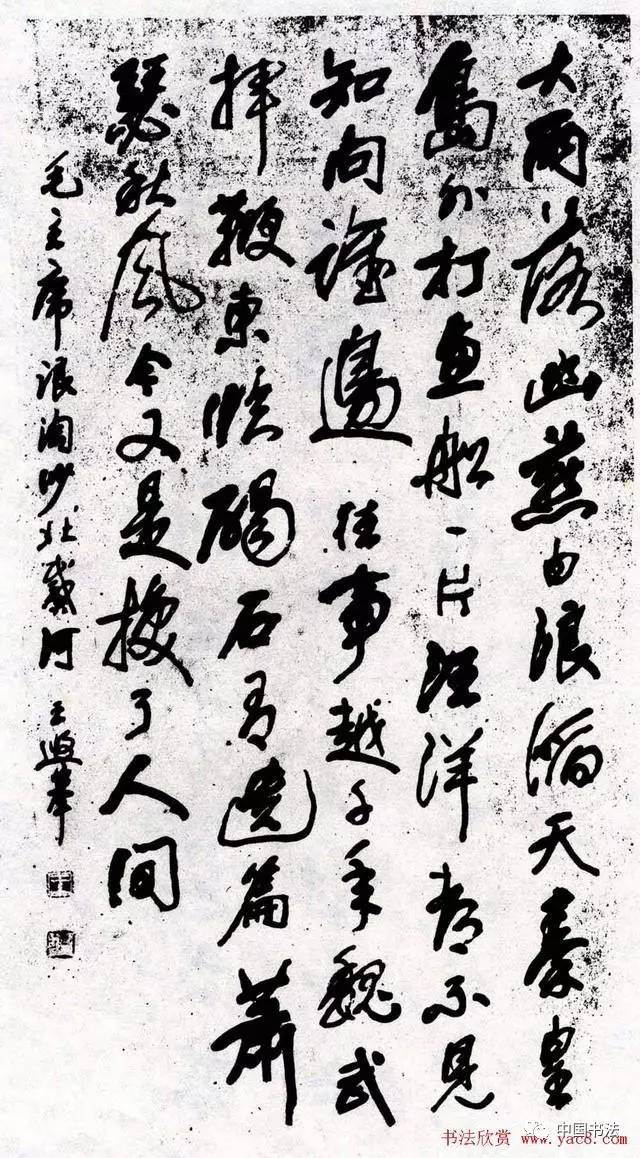 大雨落幽燕白浪滔天秦皇
島外打魚船一片汪洋都不見
知向誰邊往事越千年魏武
揮鞭東臨碣石有遺篇蕭
瑟秋風今又是換了人間
毛主席浪淘沙北戴河 王遐舉
中国书法
书法欣赏 www.yac8.com